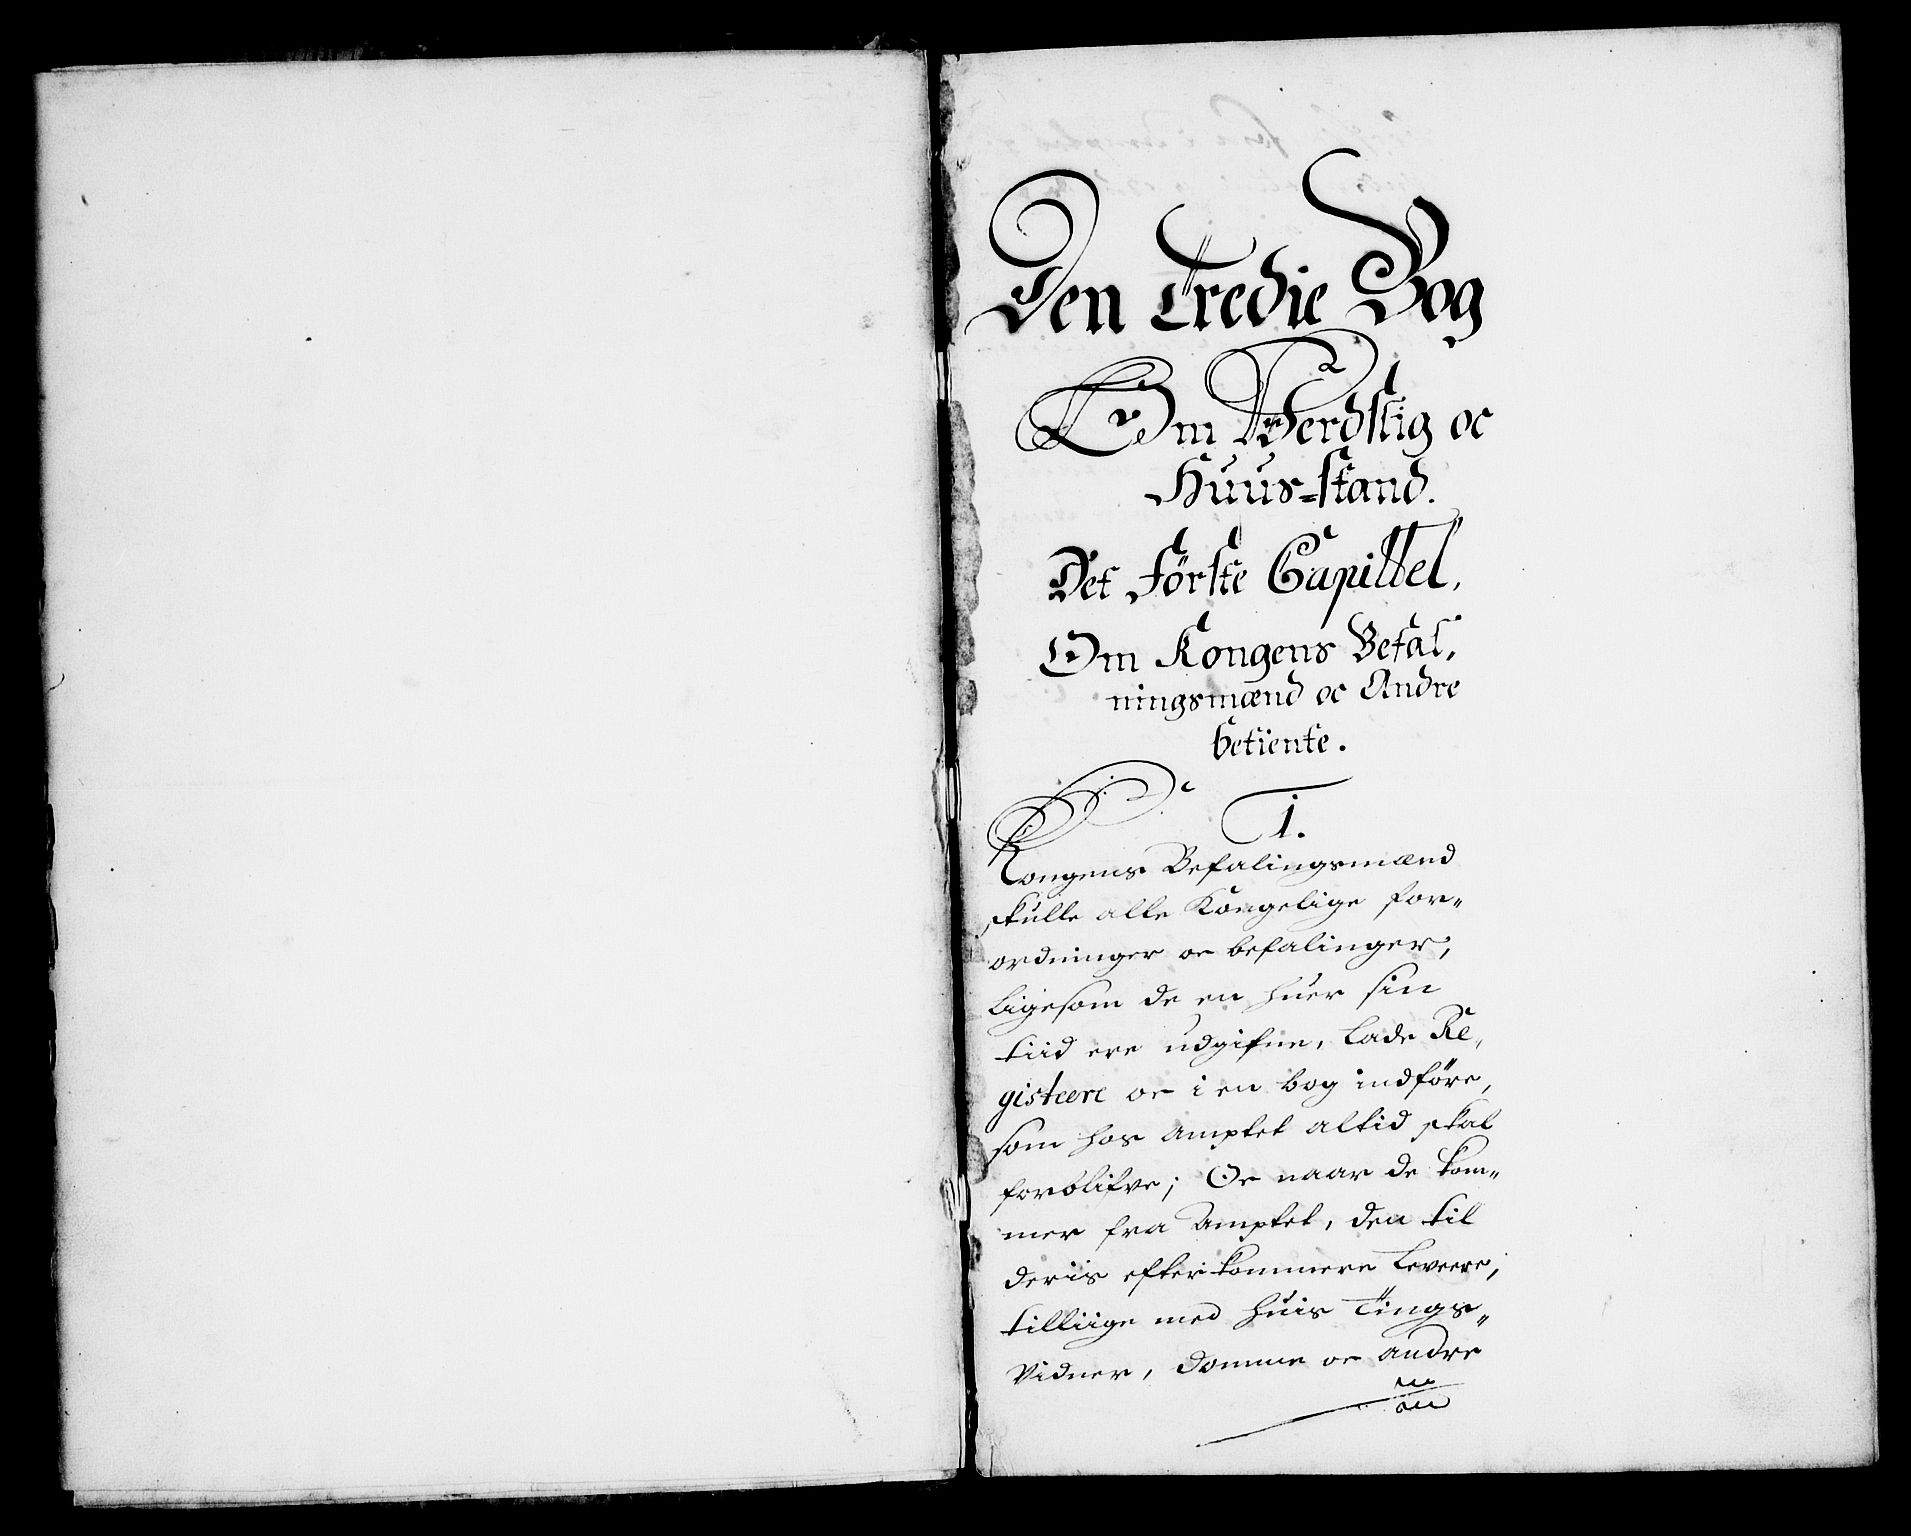 Den Tredie Bog
Om Verdslig oc
Huus-stand.
Det Første Capittel.
Om Kongens Befal-
ningsmænd oc Andre
betiente.
1.
Kongens Befalingsmænd
skulle alle Kongelige for-
ordninger oc befalinger,
ligesom de en huer sin
tiid ere udgifne, lade Re-
gisteere oc i en bog indføre,
som hos Amptet altid skal
forblifve; Oc naar de kom-
mer fra Amptet, den til
deris efterkommere levere,
tilliige med huis Tings-
Vidner, Domme oc andre